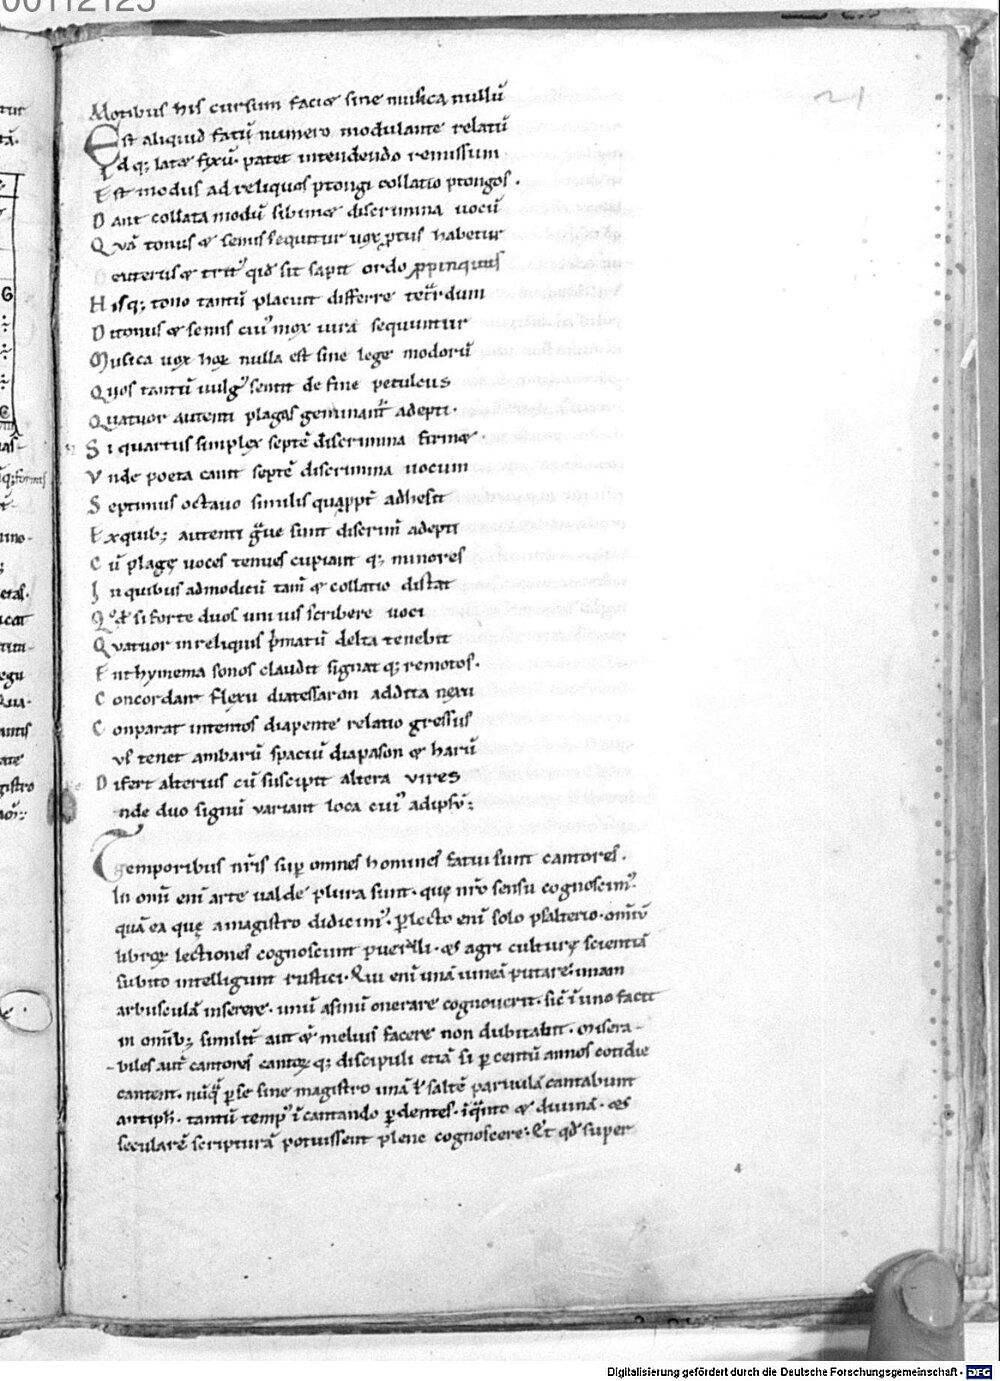 00112125
21
Motibus his cursum faciꝫ sine musica nullū
Est aliquid fatū numero modulante relatū
Idq; latꝫ fixū. patet intendendo remissum.
Est modus ad reliquos ptongi collatio ptongos.
Dant collata modū sibimꝫ discrimina uocū
Quā tonus & semis sequitur uox ptus habetur
euterus & trit' qid sit sapit ordo ꝓpinquus
Hisq; tono tantū placuit differre tet̄rdum
Ditonus & semis cui' mox iura sequuntur
Musica uox hoꝝ nulla est sine lege modorū
Quos tantū uulg' sentit de fine petulcus
Quatuor autenti plagas geminant̄ adepti.
Si quartus simplex septē discrimina firmꝫ.
Vnde poeta canit septē discrimina uocum
Septimus octauo similis quapp̄t adhesit
Exquib; autenti g̃ue sunt discrim̄ adepti
Cū plagę uoces tenues cupiant q; minores
In quibus admodicū tam̄ & collatio distat
Qd̄ si forte duos unius scribere uoci
Quatuor in reliquis p̄matū delta tenebit
Enthymema sonos claudit signat q; remotos.
Concordant flexu diatessaron addita nexu
Conparat intentos diapente relatio gressus
vł tenet ambarū spaciū diapason & harū
Difert alterius cū suscipit altera vires
nde duo signū variant loca cui' adipsū:
Temporibus nr̄is sup̱ omnes homines fatui sunt cantores.
In om̄i eni arte ualde plura sunt. quę nr̄o sensu cognoscim'.
quā ea quę a magistro didicim'. p̱lecto eni solo psalterio. om̄iū
libroꝝ lectiones cognoscunt pueruli. & agri culturę scientiā
subito intelligunt rustici. Qui eni unā uineā putare. unam
arbusculā inserere. unū asinū onerare cognouerit. sic̄ ī uno facit
in om̄ib; similit̄ aut & melius facere non dubitabit. Misera-
biles aut̄ cantores cantoꝝ q; discipuli etiā si p̱ centū annos cotidie
cantent. nūq̄ p̱ se sine magistro unā ł saltē paruulā cantabunt
antiph̄. tantū temp' ī cantando p̱dentes. ī q̄nto & diuinā. &
secularē scripturā potuissent plene cognoscere. Et qd̄ super
4
Digitalisierung gefördert durch die Deutsche Forschungsgemeinschaft - DFG